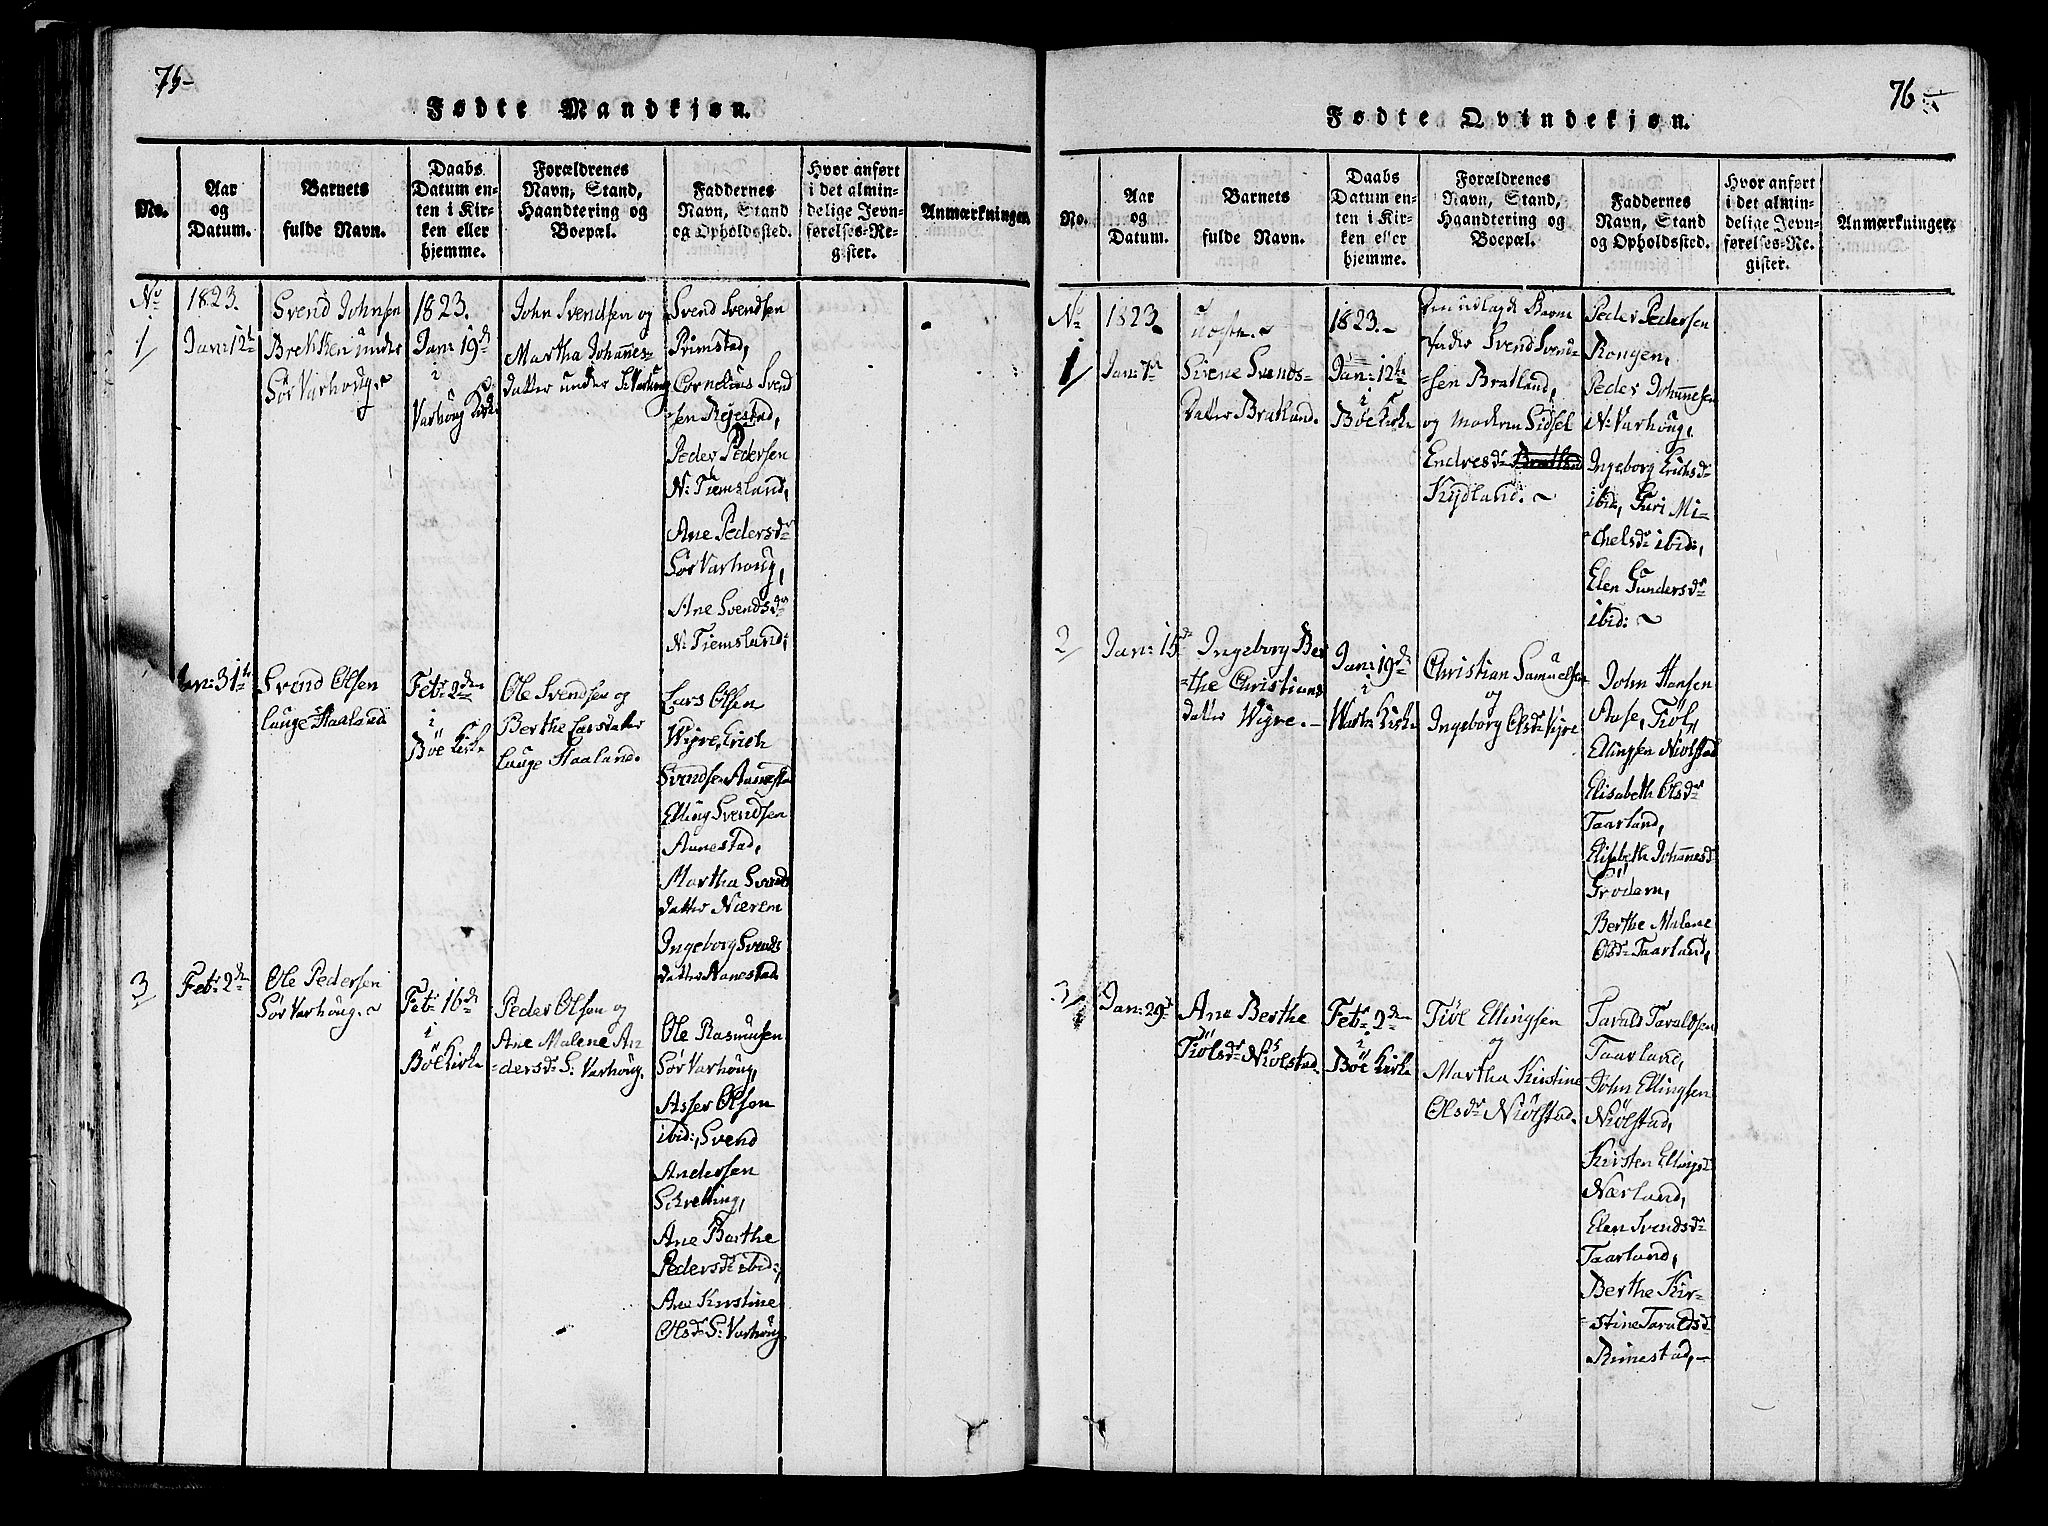 75
Fødte Mandkjøn.
No.
Aar og Datum.
Barnets fulde Navn.
Daabs Datum enten i Kirken eller hjemme.
Forældrenes Navn, Stand, Haandtering og Boepæl.
Faddernes Navn, Stand og Opholdssted.
Hvor anført i det almindelige Jevnførelses-Register.
Anmærkninger.
No
1
1823.
Jan: 12te
Svend Johnsen
Brekken under
Sør Varhoug.
1823.
Jan: 19de
i
Varhoug Kirke
John Svendsen og
Martha Johannes-
datter under S: Varhoug
Svend Svendsen
Primstad,
Cornelius Svend
sen Rejestad,
Peder Pedersen
N: Tiemsland,
Ane Pedersdr
Sør Varhoug,
Ane Svendsdr
N: Tiemsland;
Jan: 31te
Svend Olsen
Lauge Haaland
Febr 2den
i
Böe Kirke
Ole Svendsen og
Berthe Larsdatter
Lauge Haaland.
Lars Olsen
Wigre, Erich
Svendsen Aunestad
Elling Svendsen
Aunestad,
Martha Svends
datter Nærem
Ingeborg Svends
datter Aanestad
3
Feb: 2den
Ole Pedersen
Sør Varhoug.
Feb: 16de
i
Böe Kirke
Peder Olsen og
Ane Malene An
dersdr S: Varhoug.
Ole Rasmusen
Sør Varhoug,
Asser Olsen
ibid:, Svend
Andersen
Schretting,
Ane Barthe
Pedersdr ibid:,
Ane Kirstine
Olsdr S: Varhoug
76
Fødte Qvindekjøn.
No.
Aar og Datum.
Barnets fulde Navn.
Daabs Datum enten i Kirken eller hjemme.
Forældrenes Navn, Stand, Haandtering og Boepæl.
Faddernes Navn, Stand og Opholdssted.
Hvor anført i det almindelige Jevnførelses-Register.
Anmærkninger.
No
1
1823.
Jan: 7de
uægte.
Sirene Svends-
datter Bratland.
1823.
Jan: 12te
i
Böe Kirke
Den udlagde Barne
fader Svend Svend-
sen Bratland,
og moderen Sidsel
Endresdr Bratland
Kydland.
Peder Pedersen
Rongen,
Peder Johannesen
N: Varhoug,
Ingeborg Erichsdr
ibid, Guri Mi-
chelsdr ibid:,
Elen Gundersdr
ibid:
2
Jan: 15de
Ingeborg Ber
the Christians
datter Wigre.
Jan: 19de
i
Warh: Kirke
Christian Samuelsen
og
Ingeborg Olsdr Vigre
John Hansen
Aase, Tiöl
Ellingsen Niölstad
Elisabeth Olsdr
Taarland,
Elisabeth Johannesd
Grödem,
Berthe Malene
Olsdr Taarland,
3
Jan: 29de
Ane Berthe
Tiölsdr Niölstad.
Febr 2den
i
Böe Kirke
Tiöl Ellingsen
og
Martha Kirstine
Olsdr Niölstad.
Tarald Taraldsen
Taarland,
John Ellingsen
Niölstad,
Kirsten Ellingsd
Nærland,
Elen Svendsdr
Taarland,
Berthe Kir-
stine Taraldsd
Rimestad,